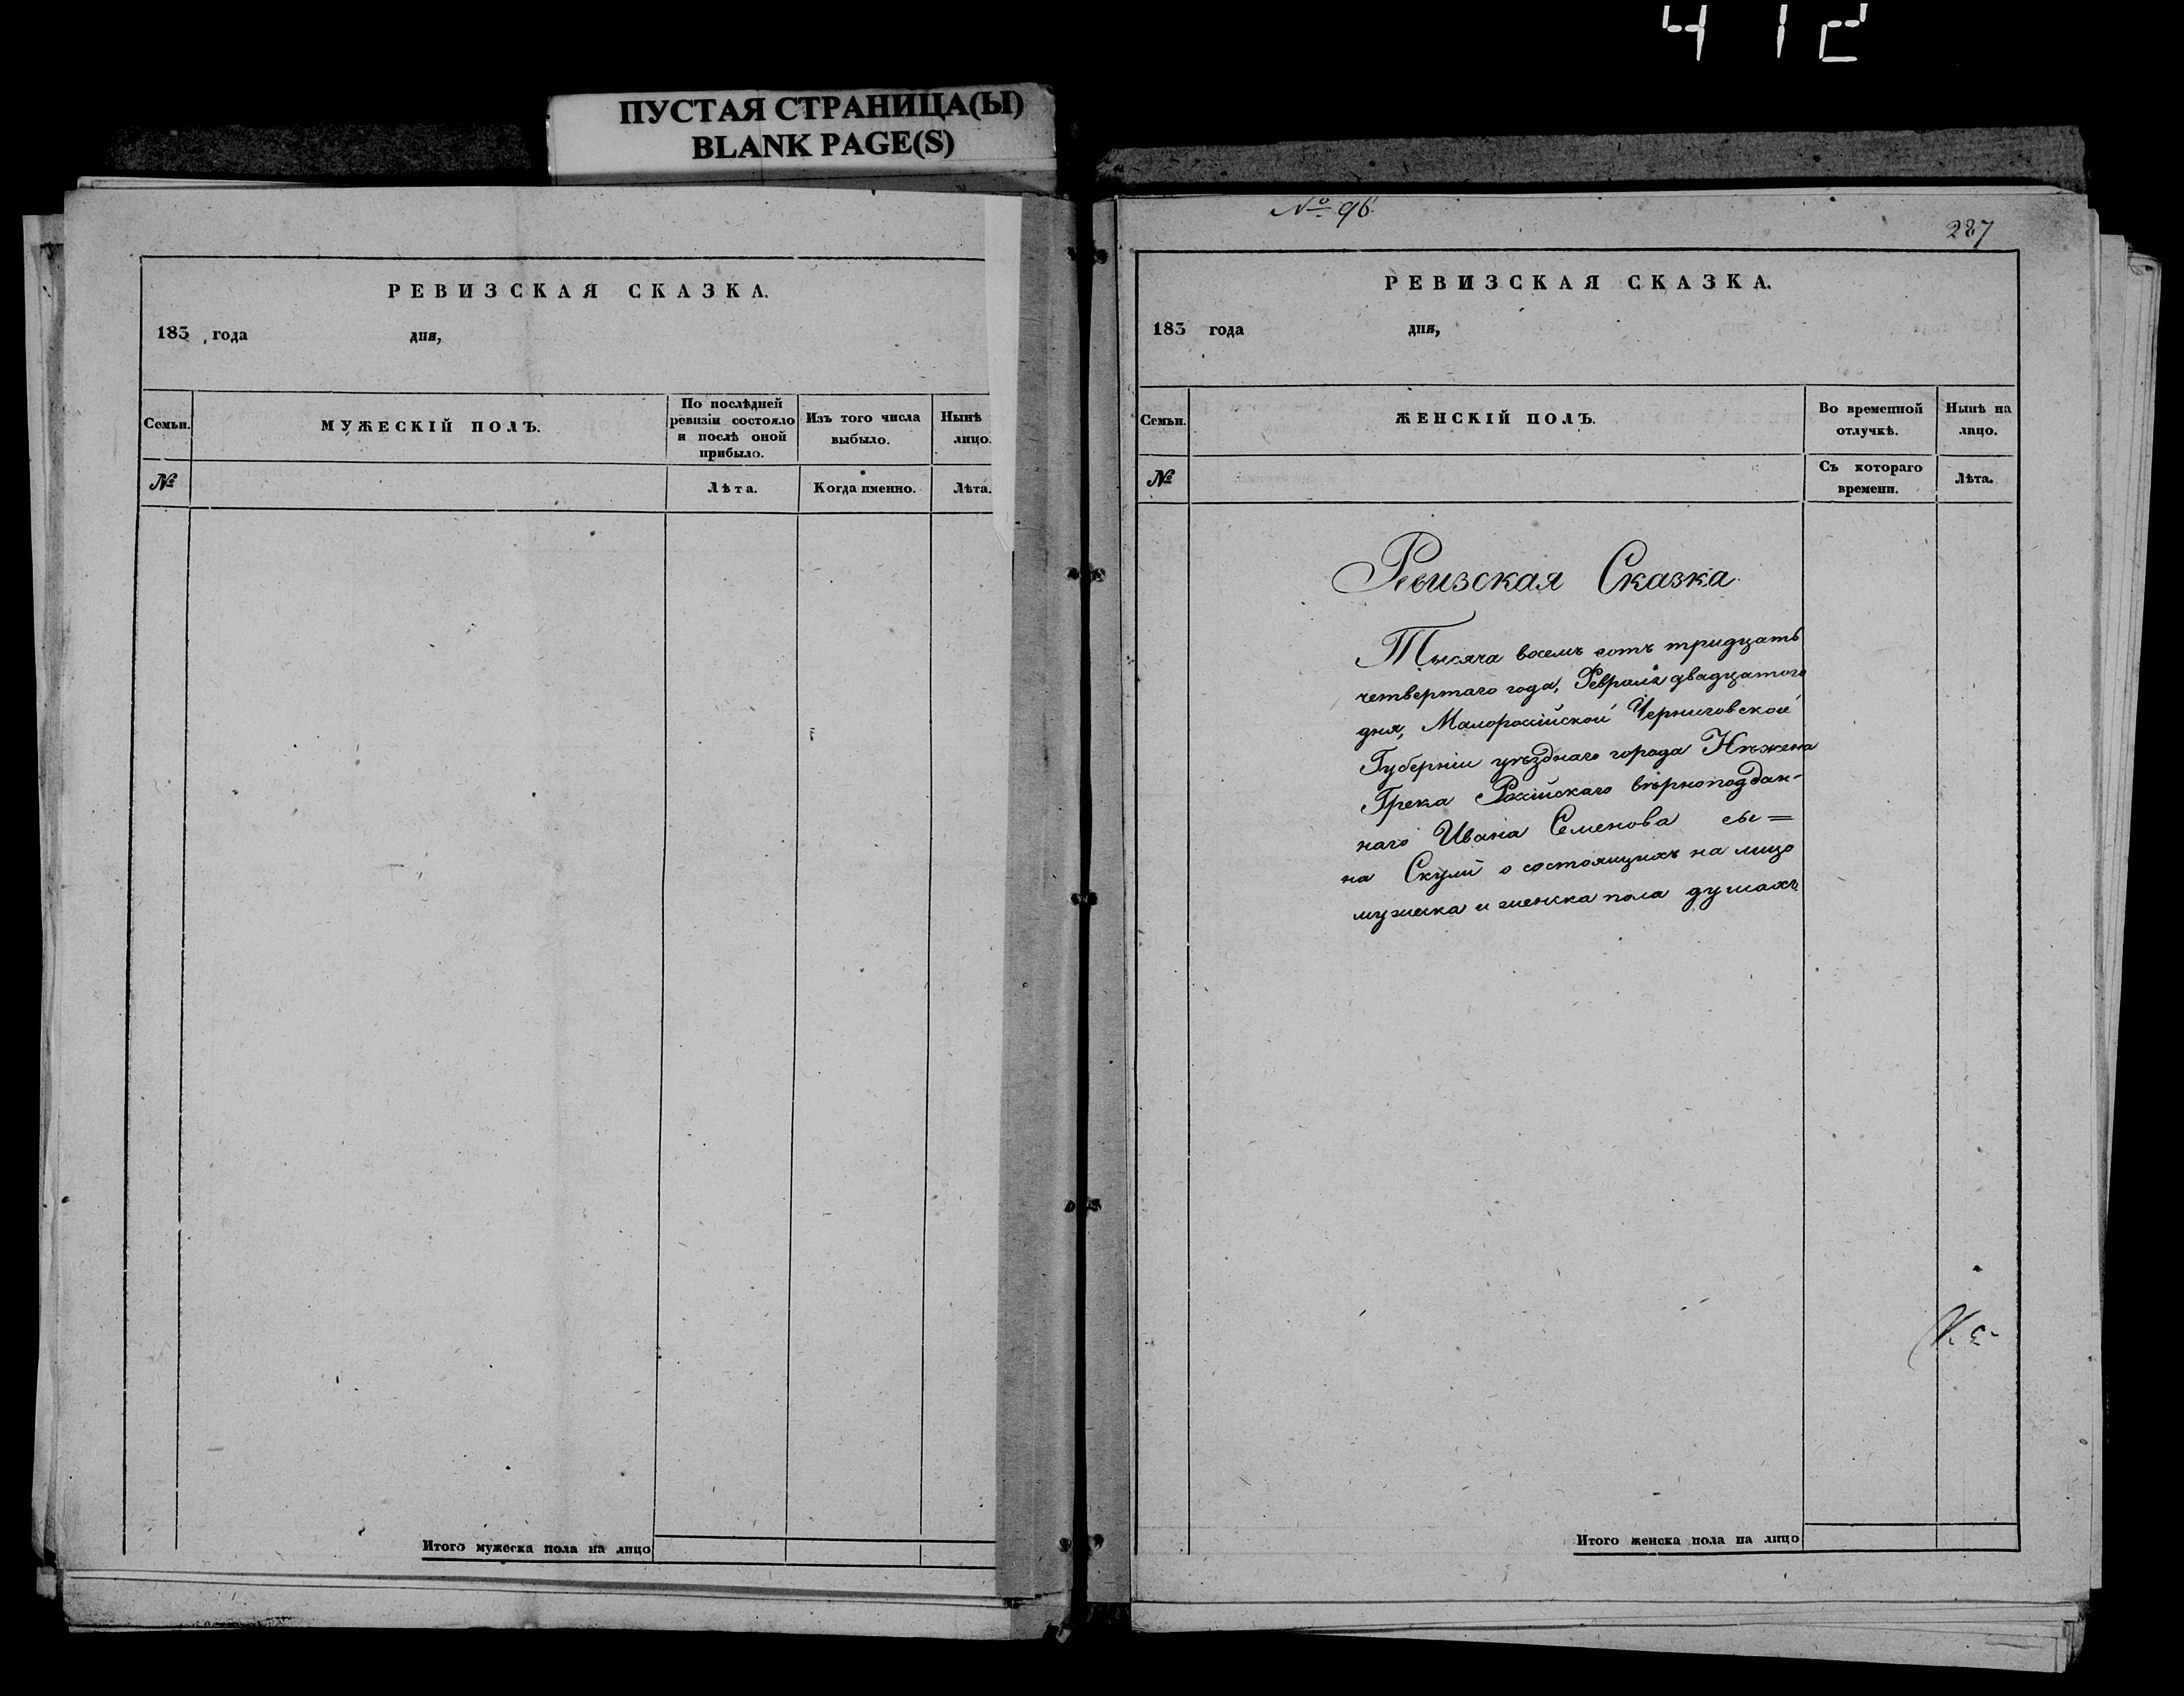 412
ПУСТАЯ СТРАНИЦА(Ы)
BLANK PAGE(S)
РЕВИЗСКАЯ СКАЗКА.
183 года дня,
Семьи.
МУЖЕСКІЙ ПОЛЪ.
По послѣдней
ревизіи состояло
и послѣ оной
прибыло.
Изъ того числа
выбыло.
Нынѣ
лицо.
№
Лѣта.
Когда именно.
Лѣта.
Итого мужеска пола на лицо
№ 96.
287
РЕВИЗСКАЯ СКАЗКА.
183 года дня,
Семьи.
ЖЕНСКІЙ ПОЛЪ.
Во временной
отлучкѣ.
Нынѣ на
лицо.
№
Съ котораго
времени.
Лѣта.
Ревизская Сказка.
Тысяча восемъ сотъ тридцать
четвертаго года, Февраля двадцатого
дня, Малоросійской Черниговской
Губерніи уѣзднаго города Нѣжена
Грека Російскаго вѣрноподдан-
наго Ивана Семенова сы=
на Скули о состоящихъ на лицо
мужеска и женска пола душахъ
Итого женска пола на лицо